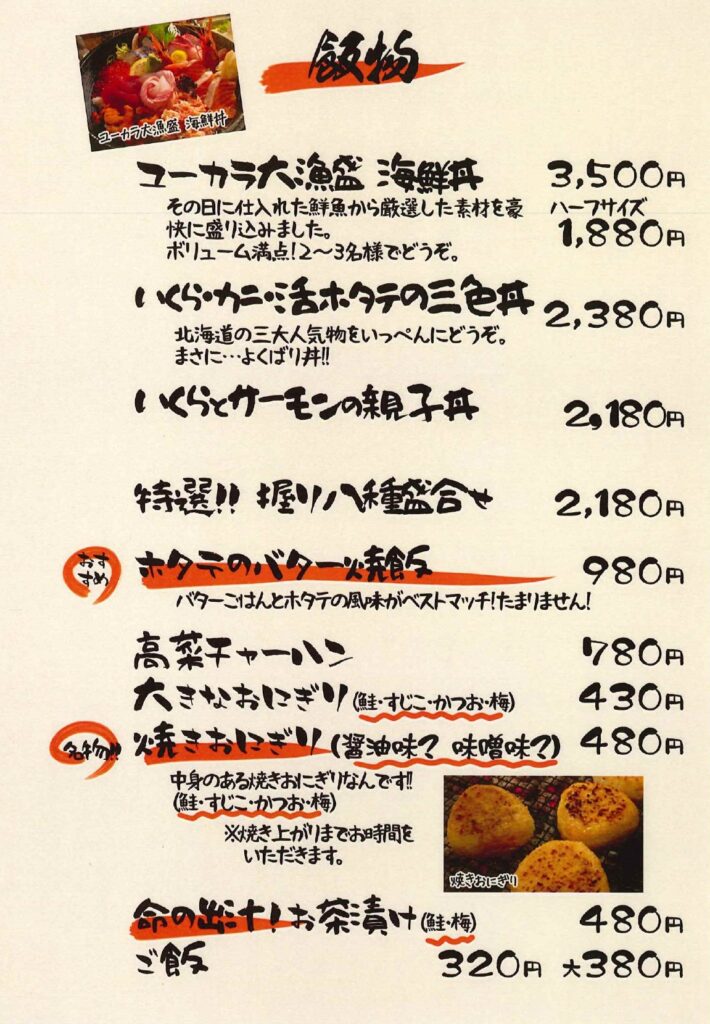 飯物
ユーカラ大漁盛 海鮮丼
ユーカラ大漁盛 海鮮丼 3,500円
その日に仕入れた鮮魚から厳選した素材を豪 ハーフサイズ
快に盛り込みました。 1,880円
ボリューム満点!2〜3名様でどうぞ。
いくら・カニ・活ホタテの三色丼 2,380円
北海道の三大人気物をいっぺんにどうぞ。
まさに…よくばり丼!!
いくらとサーモンの親子丼 2,180円
特選!! 握り八種盛合せ 2,180円
おすすめ ホタテのバター焼飯 980円
バターごはんとホタテの風味がベストマッチ!たまりません!
高菜チャーハン 780円
大きなおにぎり(鮭・すじこ・かつお・梅) 430円
名物!! 焼きおにぎり(醤油味? 味噌味?) 480円
中身のある焼きおにぎりなんです!!
(鮭・すじこ・かつお・梅)
※焼き上がりまでお時間を
いただきます。
焼きおにぎり
命の出汁!お茶漬け(鮭・梅) 480円
ご飯 320円 大380円